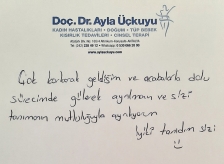 Doç. Dr. Ayla Üçkuyu
KADIN HASTALIKLARI • DOĞUM • TÜP BEBEK
KISIRLIK TEDAVİLERİ • CİNSEL TERAPİ
www.aylauckuyu.com
Çok korkarak geldiğim ve acabalarla dolu
sürecimde gülerek ayrılmanın ve sizi
tanımanın mutluluğuyla ayrılıyorum
İyi ki tanıdım sizi